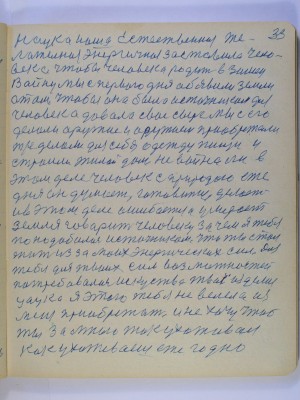 33
наука наша Естественная же-
ланная Энергичная заставила чело-
века чтобы человека родит в Землю
Войну мы с первого дня объявили Земли
о том, чтобы она была источником для
человека давала свое сырье мы с его
делаем оружие и оружием приобретаем
и делаем для себя одежду пищу и
строим жилой дом не война ли в
этом деле человек с природою еже
дня он думает, готовит, делает
и в этом деле ошибается умирает
Земля говорит человеку зачем я тебе
понадобилась источником, это ты стал
жить из за моих Энергических сил.
тебе для твоих сил возможностей
потребовалось искусство твоя
наука я этого тебе не велела из
меня приобретать и не хочу чтоб
ты за мною так ухаживал
как ухаживаеш еже годно